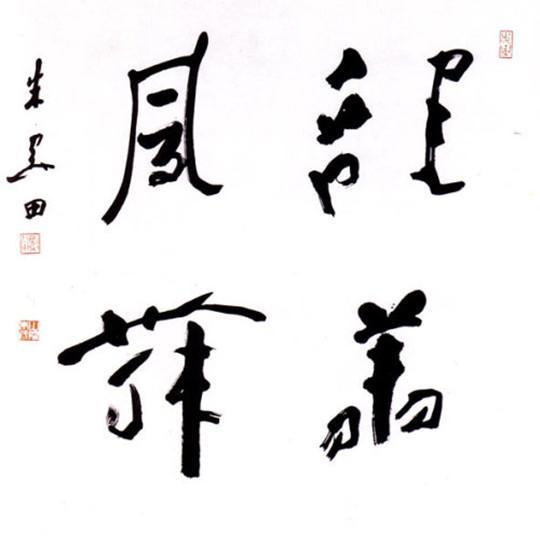 龍翔
鳳舞
朱關田